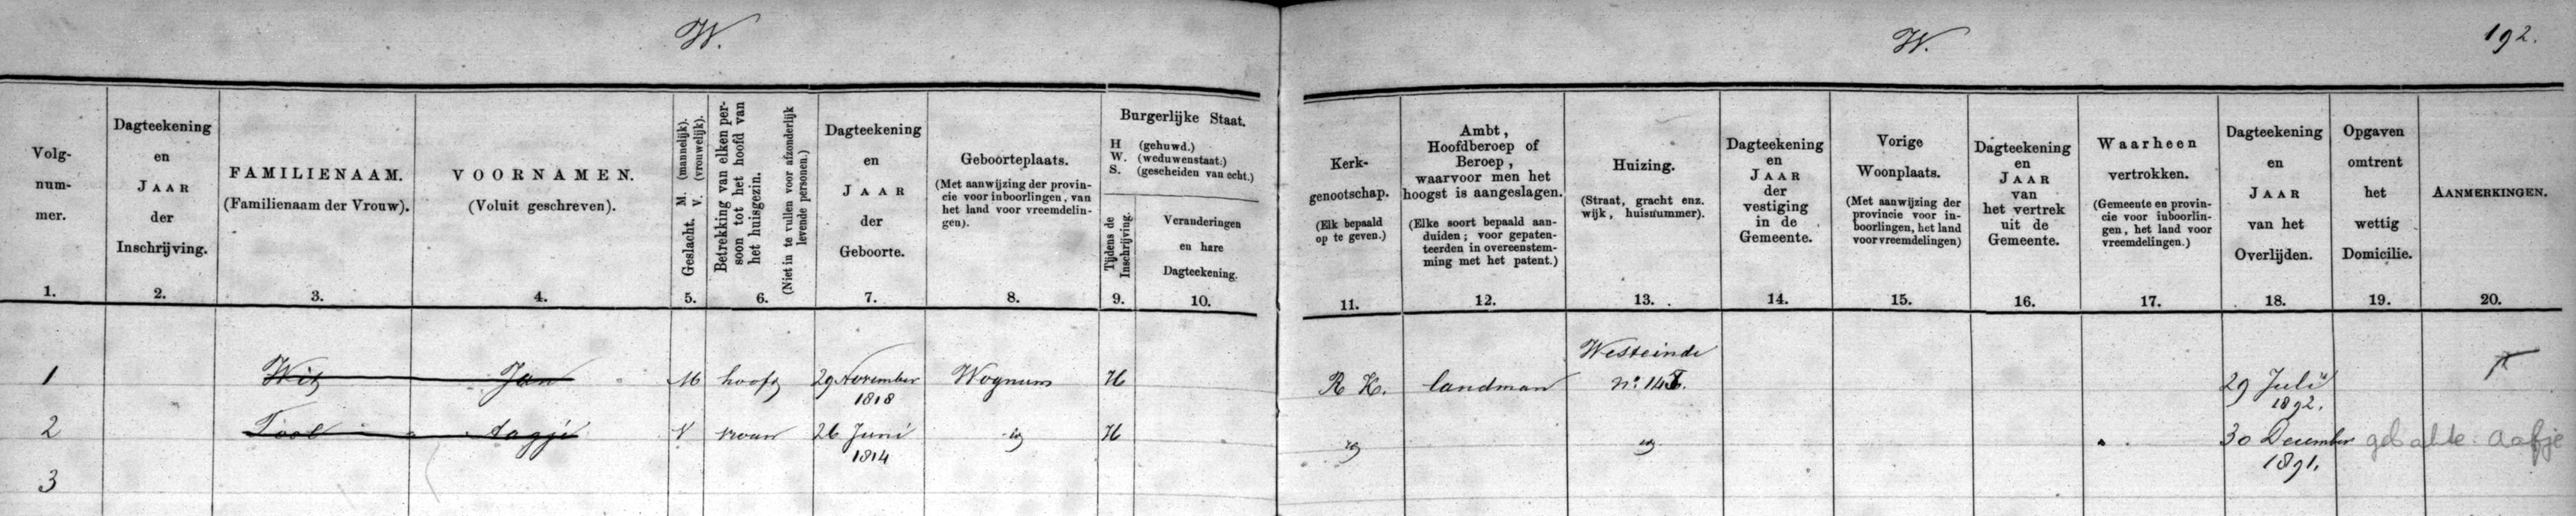 W.
W.
192.
Volg-
num-
mer.
1.
Dagteekening
en
JAAR
der
Inschrijving.
2.
FAMILIENAAM.
(Familienaam der Vrouw).
3.
VOORNAMEN.
(Voluit geschreven).
4.
Geslacht. M. (mannelijk).
V. (vrouwelijk).
5.
Betrekking van elken per-
soon tot het hoofd van
het huisgezin.
(Niet in te vullen voor afzonderlijk
levende personen.)
6.
Dagteekening
en
JAAR
der
Geboorte.
7.
Geboorteplaats.
(Met aanwijzing der provin-
cie voor inboorlingen, van
het land voor vreemdelin-
gen).
8.
Burgerlijke Staat.
H (gehuwd.)
W. (weduwenstaat.)
S. (gescheiden van echt.)
Tijdens de
Inschrijving.
9.
Veranderingen
en hare
Dagteekening.
10.
Kerk-
genootschap.
(Elk bepaald
op te geven.)
11.
Ambt,
Hoofdberoep of
Beroep,
waarvoor men het
hoogst is aangeslagen.
(Elke soort bepaald aan-
duiden; voor gepaten-
teerden in overeenstem-
ming met het patent.)
12.
Huizing.
(Straat, gracht enz.
wijk, huisnummer).
13.
Dagteekening
en
JAAR
der
vestiging
in de
Gemeente.
14.
Vorige
Woonplaats.
(Met aanwijzing der
provincie voor in-
boorlingen, het land
voor vreemdelingen)
15.
Dagteekening
en
JAAR
van
het vertrek
uit de
Gemeente.
16.
Waarheen
vertrokken.
(Gemeente en provin-
cie voor inboorlin-
gen, het land voor
vreemdelingen.)
17.
Dagteekening
en
JAAR
van het
Overlijden.
18.
Opgaven
omtrent
het
wettig
Domicilie.
19.
AANMERKINGEN.
20.
1 Wit Jan M hoofd 29 November 1818 Wognum H R K. landman Westeinde n. 29 Julij 1892.
2 Tool Aagje V vrouw 26 Juni 1814 id H id id 30 December 1891. geb akte: Aafje
3